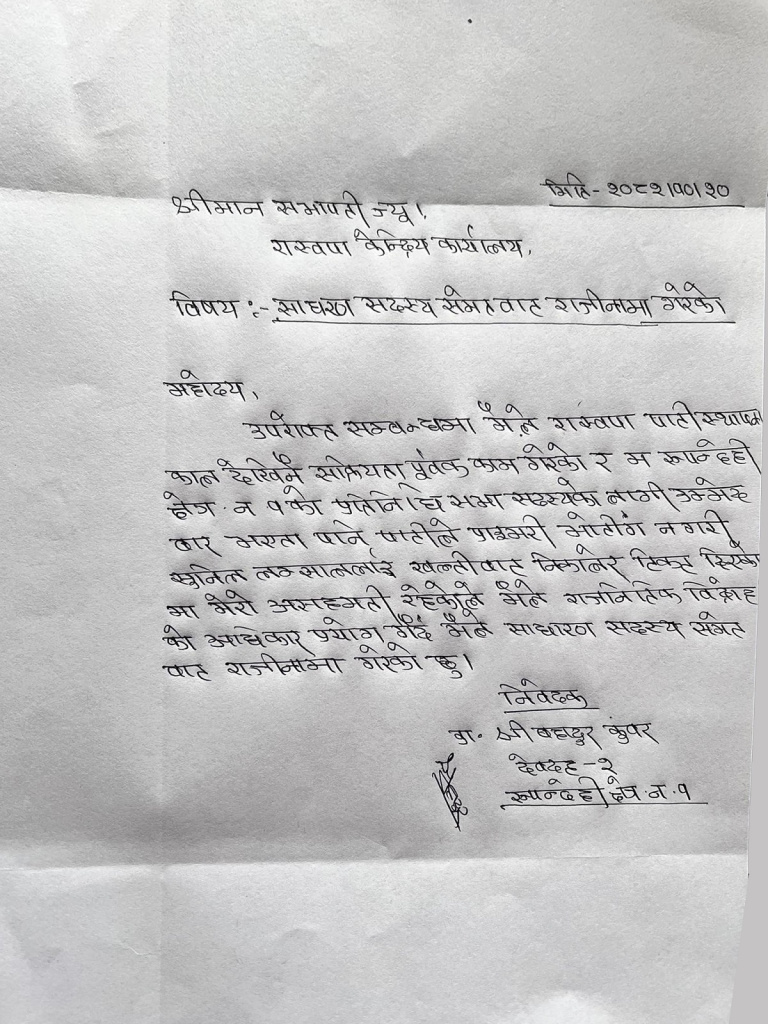 मिति- २०८२।१०।२०
श्रीमान सभापती ज्यू।,
रास्वपा केन्द्रिय कार्यालय,
विषय :- साधरण सदस्य समेत वाट राजीनामा गरेको
महोदय,
उपरोक्त सम्वन्धमा मैले रास्वपा पार्टी स्थापना
काल देखिनै सक्रियता पूर्वक काम गरेको र म रूपन्देही
क्षेत्र न १ को प्रतिनिधि सभा सदस्यको लागी उम्मेद
वार भएता पनि पार्टीले प्राइमरी भोटीगं न गरी
सुनिल लम्साललाई खल्तीवाट निकालेर टिकट दिएको
मा मेरो असहमती रहेकोले मैले राजनितिक विद्रोह
को अधिकार प्रयोग गर्दै मैले साधारण सदस्य समेत
वाट राजीनामा गरेको छु।
निवेदक
श्री बहादुर कुंवर
देवदह -२
रूपन्देही क्षेत्र न. १